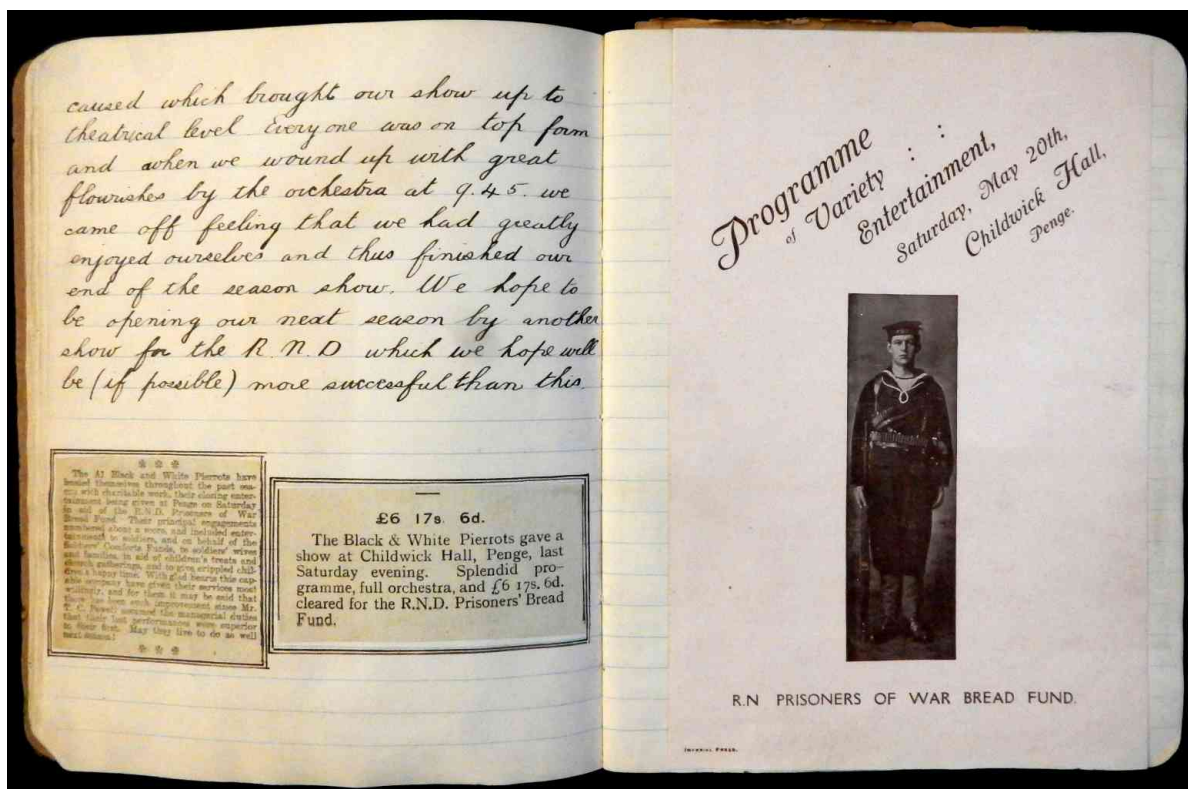 caused which brought our show up to
theatrical level Everyone was on top form
and when we wound up with great
flourishes by the orchestra at 9.45. we
came off feeling that we had greatly
enjoyed ourselves and thus finished our
end of the season show. We hope to
be opening our next season by another
show for the R.N.D which we hope will
be (if possible) more successful than this.
The A1 Black and White Pierrots have
busied themselves throughout the past sea-
son with charitable work, their closing enter-
tainment being given at Penge on Saturday
in aid of the R.N.D. Prisoners of War
Bread Fund. Their principal engagements
numbered about a score, and included enter-
tainments to soldiers, and on behalf of the
Soldiers' Comforts Funds, to soldiers' wives
and families, in aid of children's treats and
church gatherings, and to give crippled chil-
dren a happy time. With glad hearts this cap-
able company have given their services most
willingly, and for them it may be said that
there has been such improvement since Mr.
T. C. assumed the managerial duties
that their last performances were superior
to their first. May they live to do as well
next season!
£6 17s. 6d.
The Black & White Pierrots gave a
show at Childwick Hall, Penge, last
Saturday evening. Splendid pro-
gramme, full orchestra, and £6 17s. 6d.
cleared for the R.N.D. Prisoners' Bread
Fund.
Programme
of Variety :
Entertainment,
Saturday, May 20th,
Childwick Hall,
Penge.
R.N PRISONERS OF WAR BREAD FUND.
IMPERIAL PRESS.